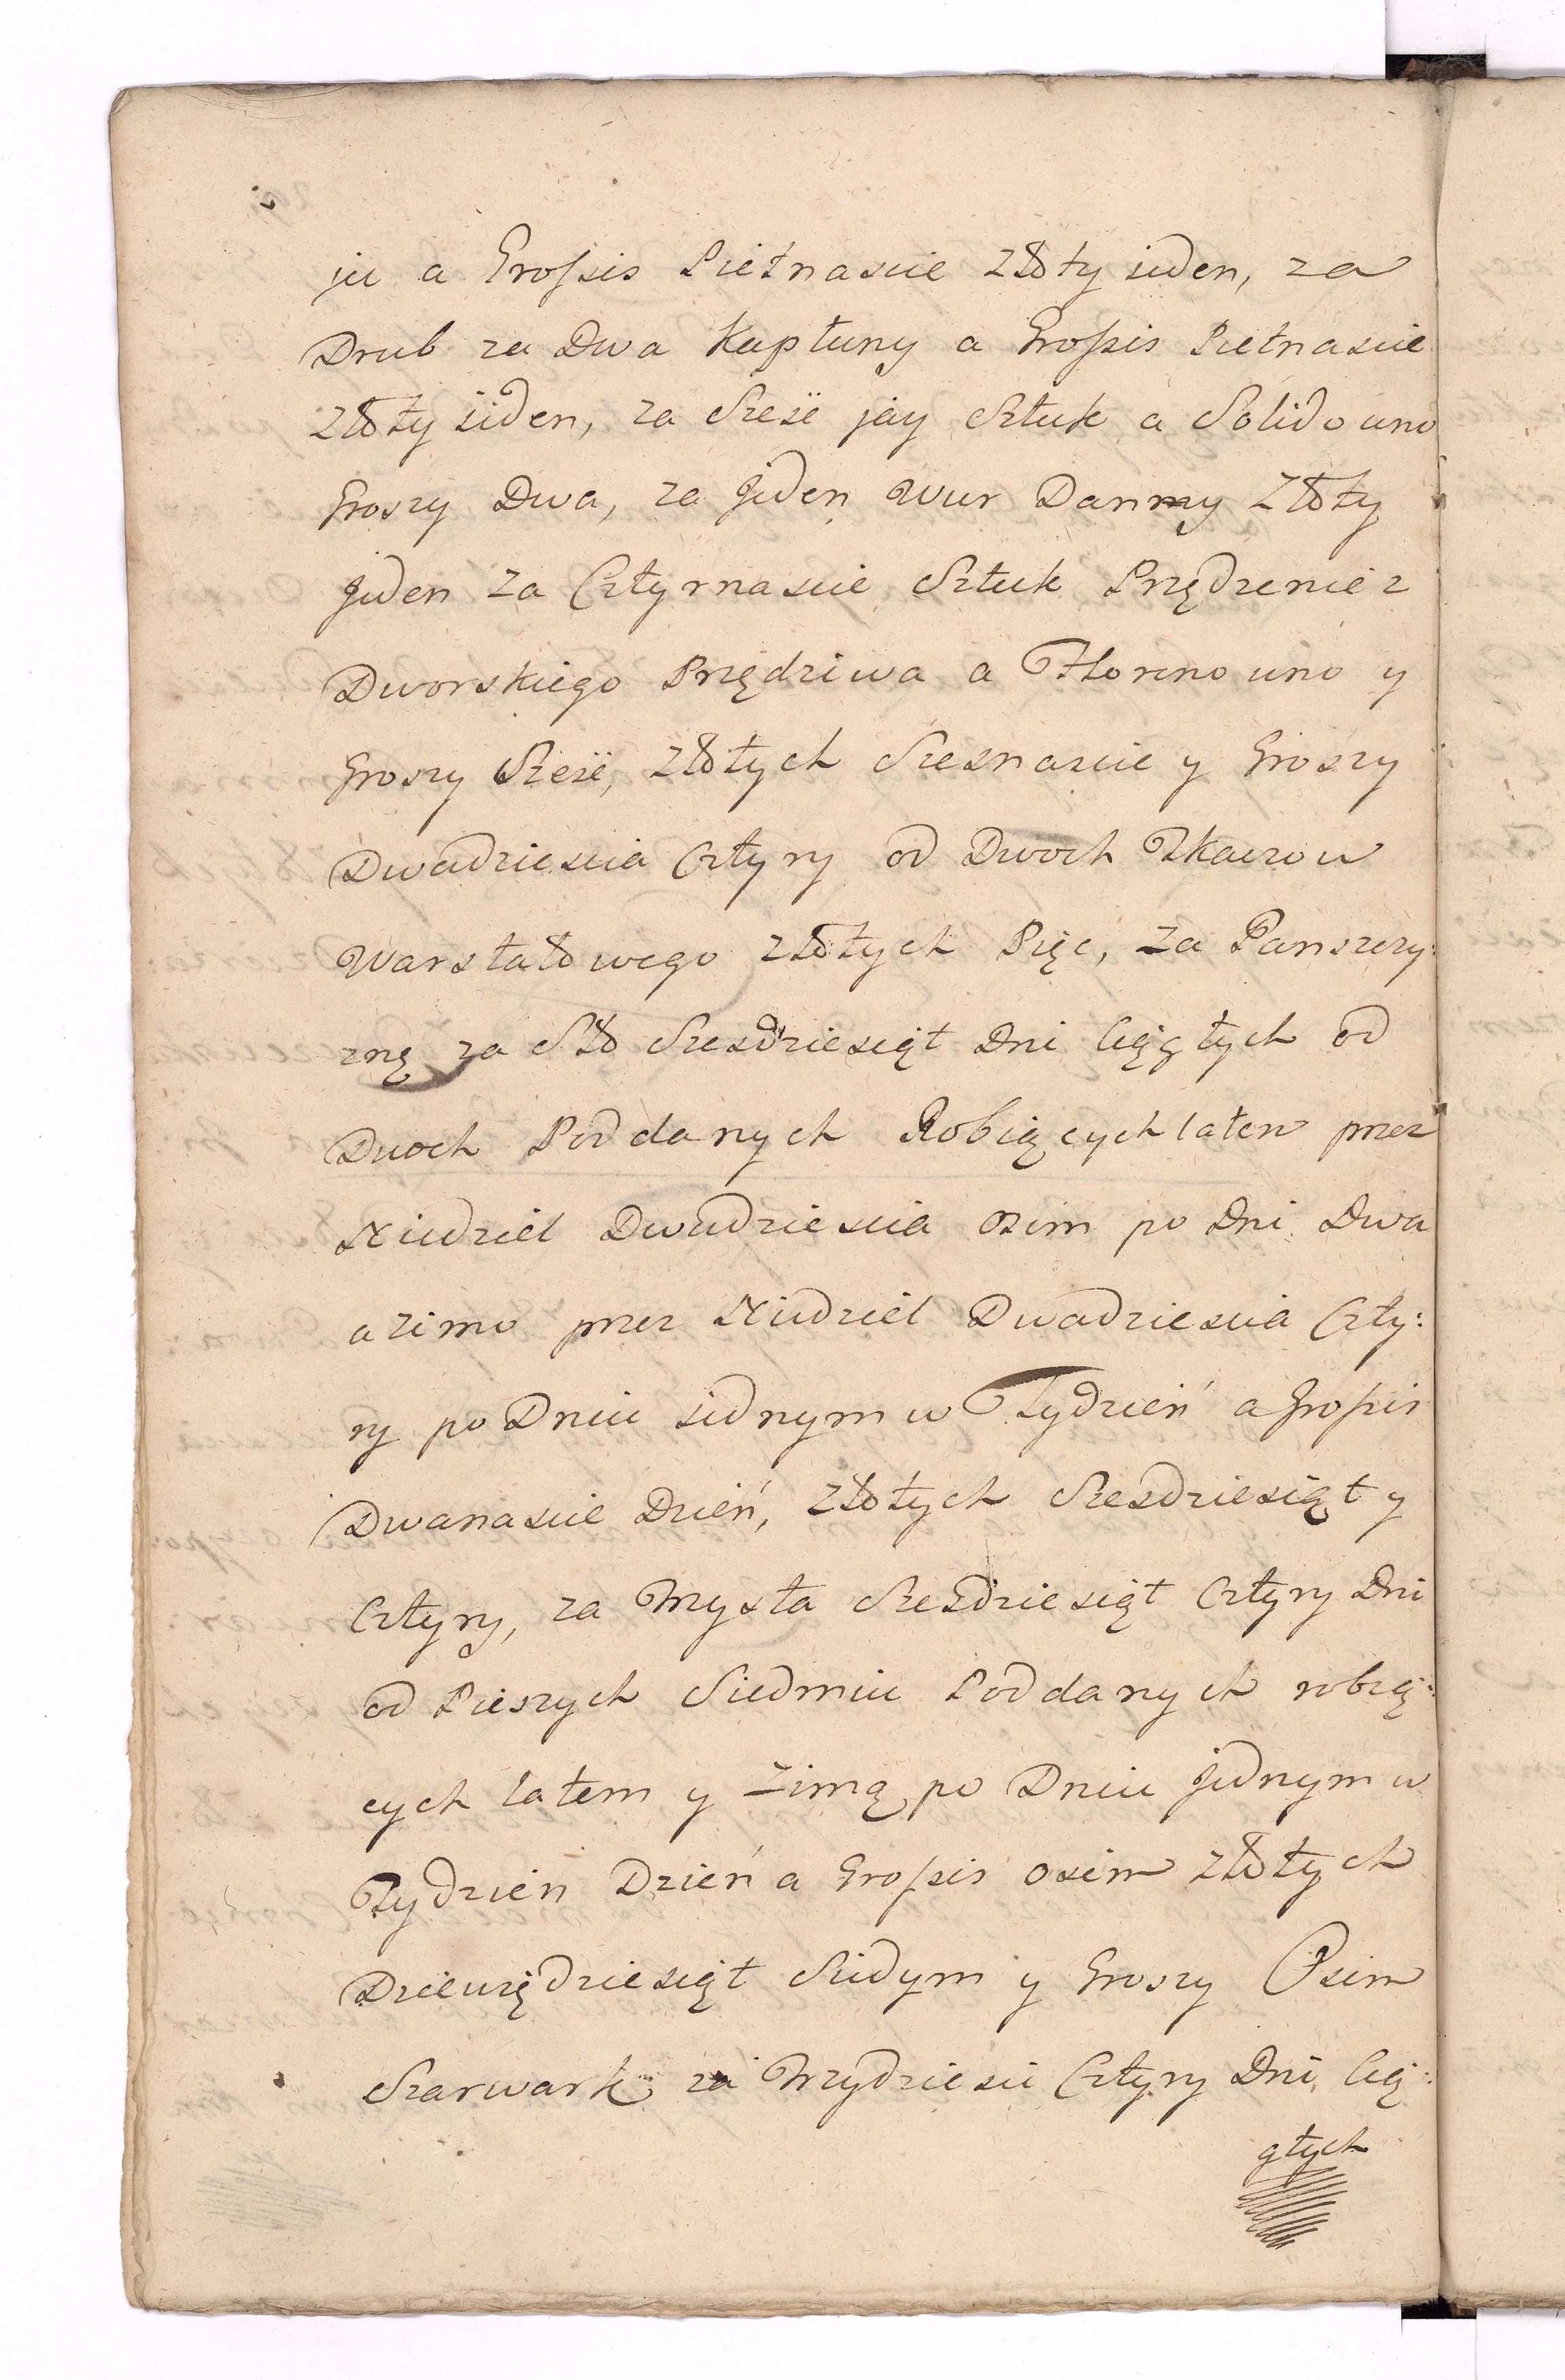 ju a Grossis Pietnascie Złoty jeden, za
Drub za Dwa Kapłuny a Grossis Pietnascie
Złoty jeden, za Szesć jay Sztuk a Solido uno
Groszy Dwa, za Jeden Wur Danny Złoty
Jeden za Cztyrnascie Sztuk Przędzenie z
Dworskiego Przędziwa a Floreno uno y
Groszy Szesć, Złotych Szesnascie y Groszy
Dwadziescia Cztyry od Dwoch Tkaczow
Warstatowego Złotych Pięc, za Panszczy:
znę za Sto Szesdziesiąt Dni Ciągłych od
Dwoch Poddanych Robiących latem przez
Niedziel Dwadziescia Osim po Dni Dwa
a zimo przez Niedziel Dwadziescia Czty:
ry po Dniu jednym w Tydzień a Grossis
Dwanascie Dzień, Złotych Szesdziesiąt y
Cztyry, za Trzysta Szesdziesiąt Cztyry Dni
od Pieszych Siedmiu Poddanych robią:
cych latem y zimą po Dniu jednym w
Tydzien Dzień a Grossis osim Złotych
Dziewiędziesiąt Siedym y Groszy Osim
Szarwark za Trzydziesci Cztyry Dni Cią:
głych